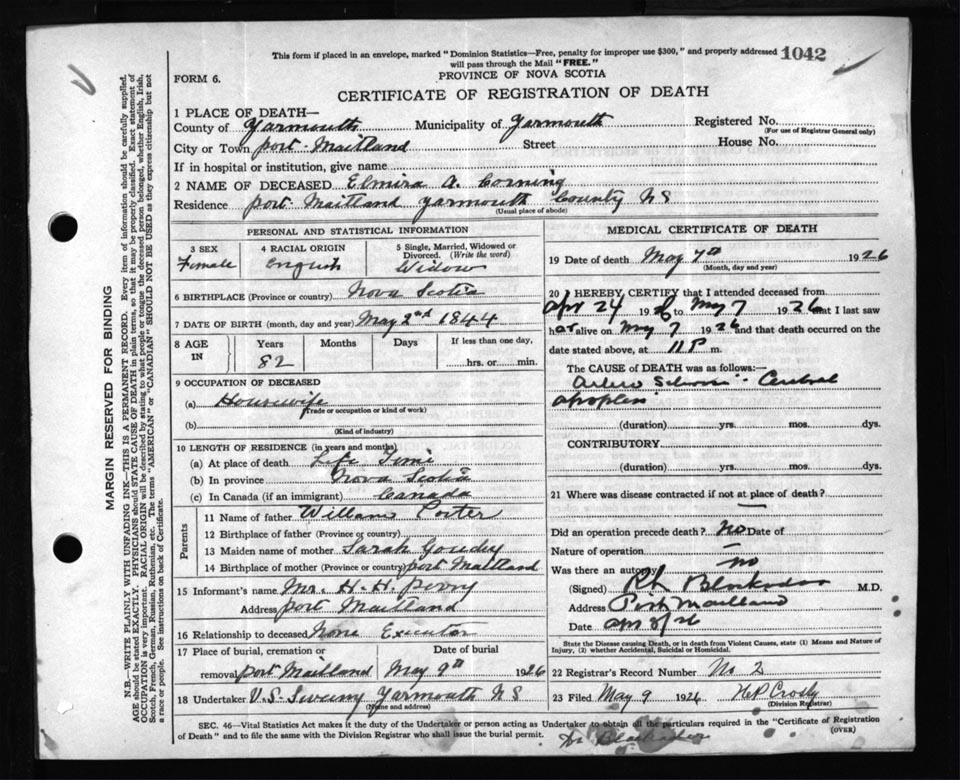 This form if placed in an envelope, marked "Dominion Statistics—Free, penalty for improper use $300," and properly addressed
will pass through the Mail "FREE."
1042
FORM 6.
PROVINCE OF NOVA SCOTIA
CERTIFICATE OF REGISTRATION OF DEATH
1 PLACE OF DEATH—
County of Yarmouth Municipality of Yarmouth Registered No.
(For use of Registrar General only)
City or Town Port Maitland Street House No.
If in hospital or institution, give name
2 NAME OF DECEASED Elmira A. Corning
Residence Port Maitland Yarmouth County NS
(Usual place of abode)
PERSONAL AND STATISTICAL INFORMATION
3 SEX Female
4 RACIAL ORIGIN English
5 Single, Married, Widowed or
Divorced. (Write the word)
Widow
6 BIRTHPLACE (Province or country) Nova Scotia
7 DATE OF BIRTH (month, day and year) May 2nd 1844
8 AGE IN Years 82 Months Days If less than one day,
hrs. or min.
9 OCCUPATION OF DECEASED
(a) Housewife
(Trade or occupation or kind of work)
(b)
(Kind of industry)
10 LENGTH OF RESIDENCE (in years and months)
(a) At place of death Life Time
(b) In province Nova Scotia
(c) In Canada (if an immigrant) Canada
Parents
11 Name of father William Porter
12 Birthplace of father (Province or country)
13 Maiden name of mother Sarah Goudey
14 Birthplace of mother (Province or country) Port Maitland
15 Informant's name Mr. H. H. Perry
Address Port Maitland
16 Relationship to deceased None Executor
17 Place of burial, cremation or removal Port Maitland
Date of burial May 9th 1926
18 Undertaker V.S. Sweeny Yarmouth NS
(Name and address)
MEDICAL CERTIFICATE OF DEATH
19 Date of death May 7th 1926
(Month, day and year)
20 I HEREBY CERTIFY that I attended deceased from
Apr 24 1926 to May 7 1926 that I last saw
her alive on May 7 1926 and that death occurred on
date stated above, at 11 P m.
The CAUSE OF DEATH was as follows:—
(duration) yrs. mos. dys.
CONTRIBUTORY.
(duration) yrs. mos. dys.
21 Where was disease contracted if not at place of death?
—
Did an operation precede death? No Date of
Nature of operation —
Was there an autopsy no
(Signed) M.D.
Address Port Maitland
Date Apr 8/26
State the Disease causing Death, or in death from Violent Causes, state (1) Means and Nature of
Injury, (2) whether Accidental, Suicidal or Homicidal.
22 Registrar's Record Number No 2
23 Filed May 9 1926 H P Crosby
(Division Registrar)
SEC. 46—Vital Statistics Act makes it the duty of the Undertaker or person acting as Undertaker to obtain all the particulars required in the "Certificate of Registration
of Death" and to file the same with the Division Registrar who shall issue the burial permit.
(OVER)
MARGIN RESERVED FOR BINDING
N.B.—WRITE PLAINLY WITH UNFADING INK—THIS IS A PERMANENT RECORD. Every item of information should be carefully supplied.
AGE should be stated EXACTLY. PHYSICIANS should STATE CAUSE OF DEATH in plain terms, so that it may be properly classified. Exact statement of
OCCUPATION is very important. RACIAL ORIGIN will be described by stating to what people or tongue the deceased person belonged, whether English, Irish,
Scotch, French, German, Russian, Ruthenian, etc. The terms "AMERICAN" or "CANADIAN" SHOULD NOT BE USED as they express citizenship but not
a race or people. See instructions on back of Certificate.